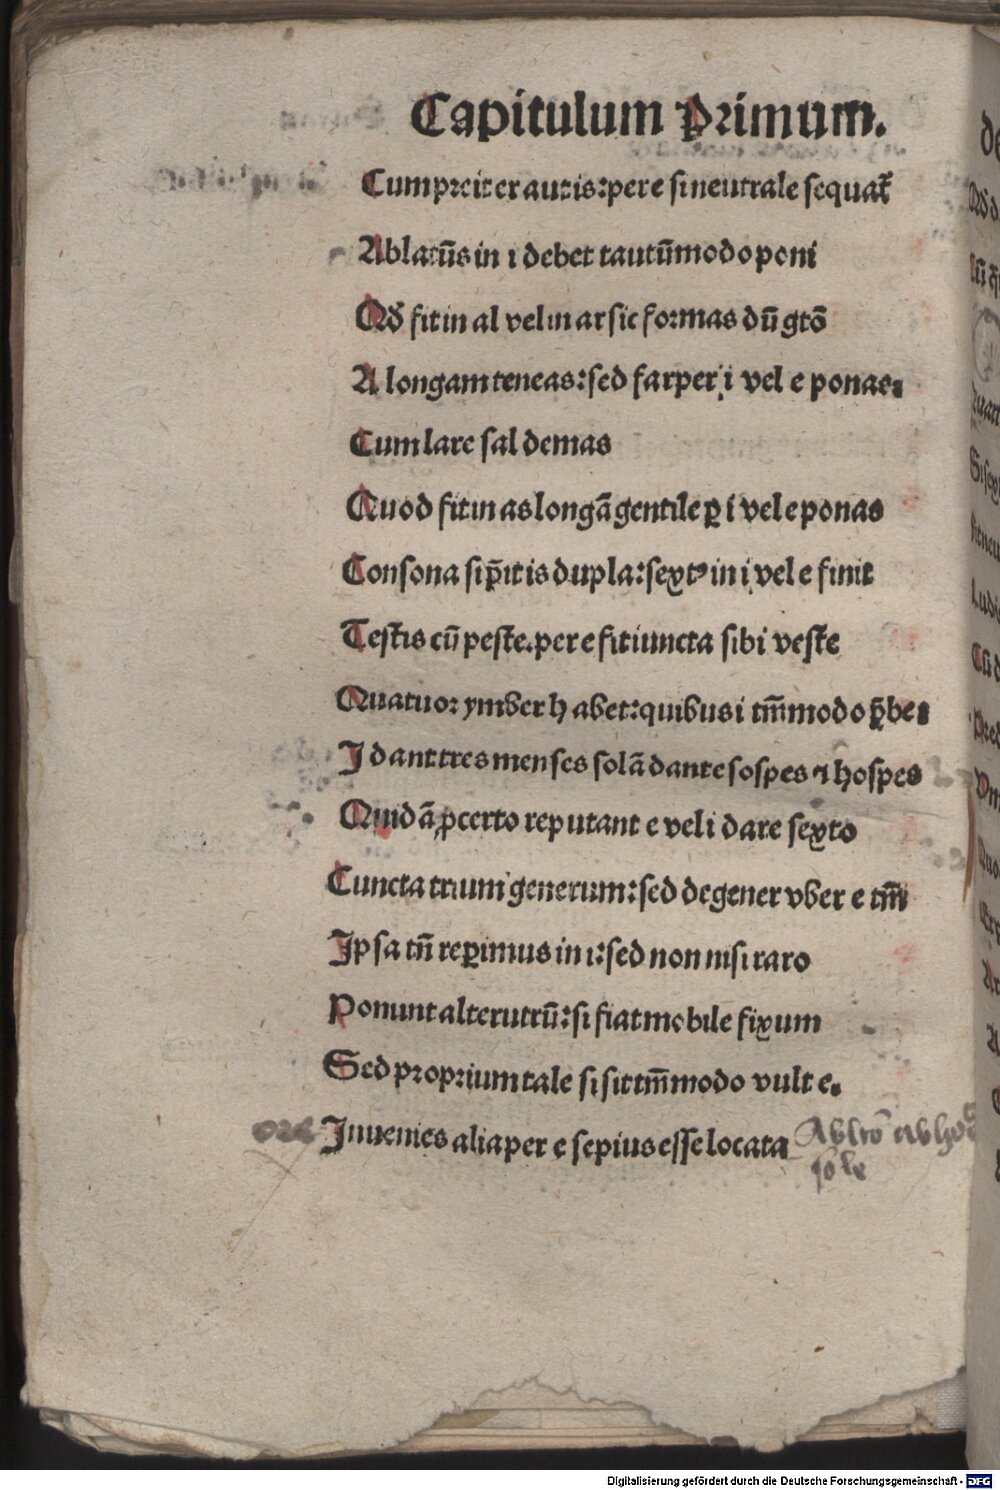 Capitulum Primum.
Cum preit er aut is: per e si neutrale sequat̃
Ablatũs in i debet tautũmodo poni
Qđ fit in al vel in ar sic formas dũ gtõ
A longam teneas: sed far per i vel e ponas.
Cum lare sal demas
Quod fit in as longã gentile ꝑ i vel e ponas
Consona si p̃it is dupla: sextꝰ in i vel e finit
Testis cũ peste. per e fit iuncta sibi veste
Quatuor ymber habet: quibus i tm̃modo p̱̃bes
I dant tres menses solã dant e sospes ⁊ hospes
Quidã ꝓcerto reputant e vel i dare sexto
Cuncta trium generum: sed degener vber e tm̃
Ipsa tñ reꝑimus in i: sed non nisi raro
Ponunt alterutrũ: si fiat mobile fixum
Sed proprium tale si sit tm̃modo vult e.
Inuenies alia per e sepius esse locata
Digitalisierung gefördert durch die Deutsche Forschungsgemeinschaft - DFG